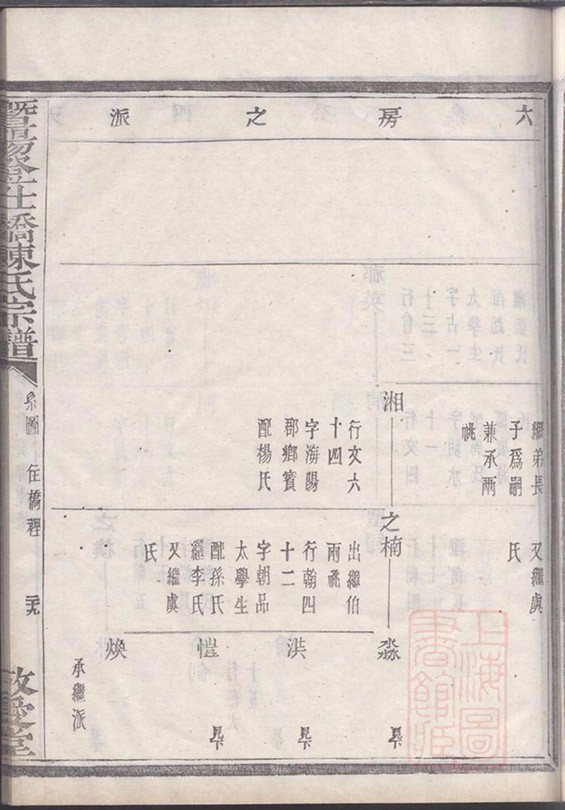 六房之派
繼弟長
子爲嗣
兼承兩
祧
又繼虞
氏
湘
行文六
十四
字瀚陽
郡鄉賓
配楊氏
之楠
出繼伯
兩祧
行翰四
十二
字朝品
太學生
配孫氏
繼李氏
又繼虞
氏
淼
洪
愷
煥
承繼派
暨陽 仕橋陳氏宗譜
系圖
任橋程
敬愛堂
上海圖書館藏